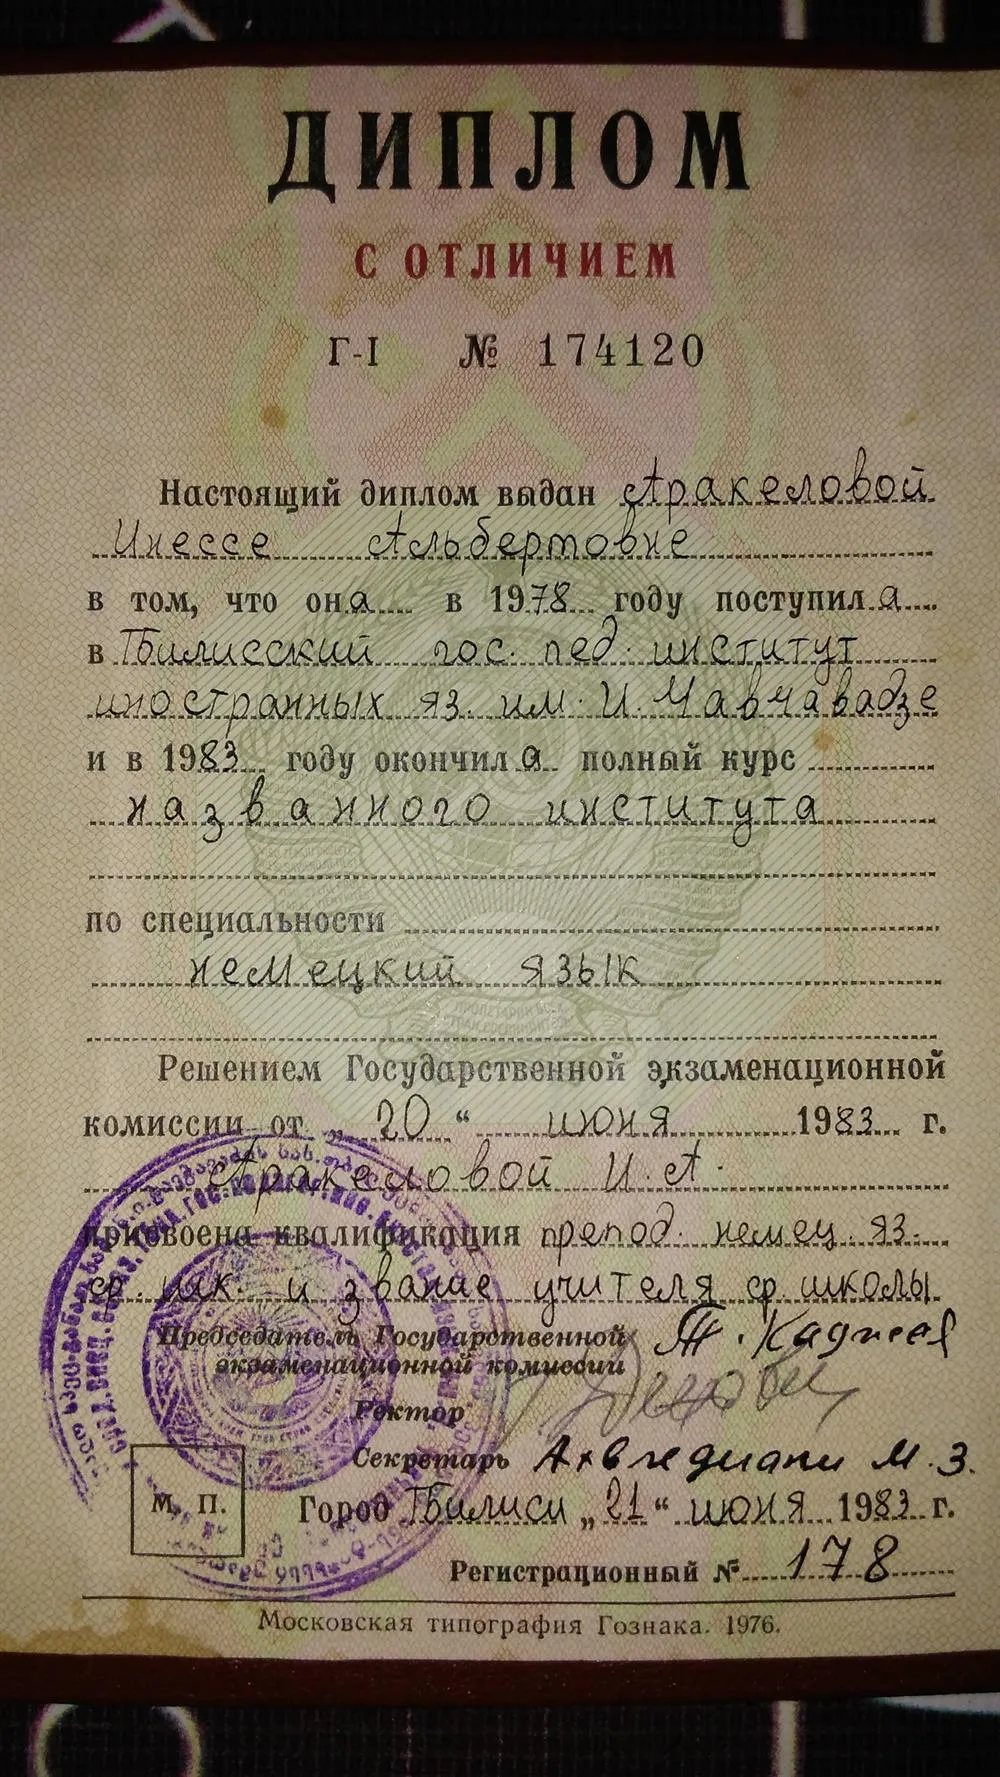 ДИПЛОМ
С ОТЛИЧИЕМ
Г-I № 174120
Настоящий диплом выдан Аракеловой
Инессе Альбертовне
в том, что она в 1978 году поступила
в Тбилисский гос. пед. институт
иностранных яз. им. И. Чавчавадзе
и в 1983 году окончила полный курс
названного института
по специальности
немецкий язык
Решением Государственной экзаменационной
комиссии от „20“ июня 1983 г.
Аракеловой И. А.
присвоена квалификация препод. немец. яз.
ср. шк. и звание учителя ср. школы
Председатель Государственной
экзаменационной комиссии
Ректор
Секретарь М. З.
М. П. Город Тбилиси „21“ июня 1983 г.
Регистрационный № 178
Московская типография Гознака. 1976.